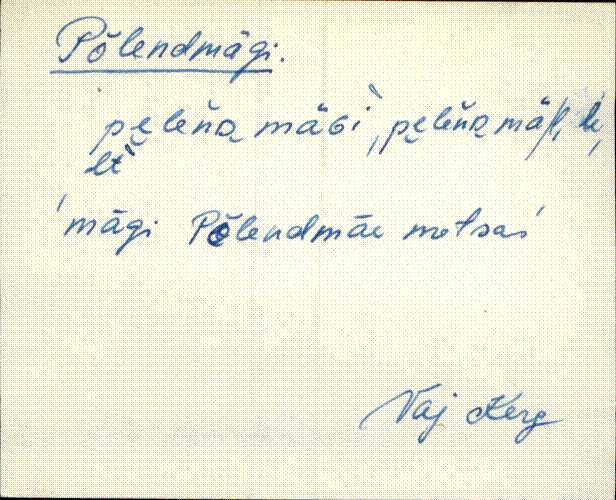 Põlendmägi.
pe̮leńn̥a mäɢi, pe̮leńn̥a mäl, le,
lt
'mägi Põlendmäe metsas'
Vaj Kerg